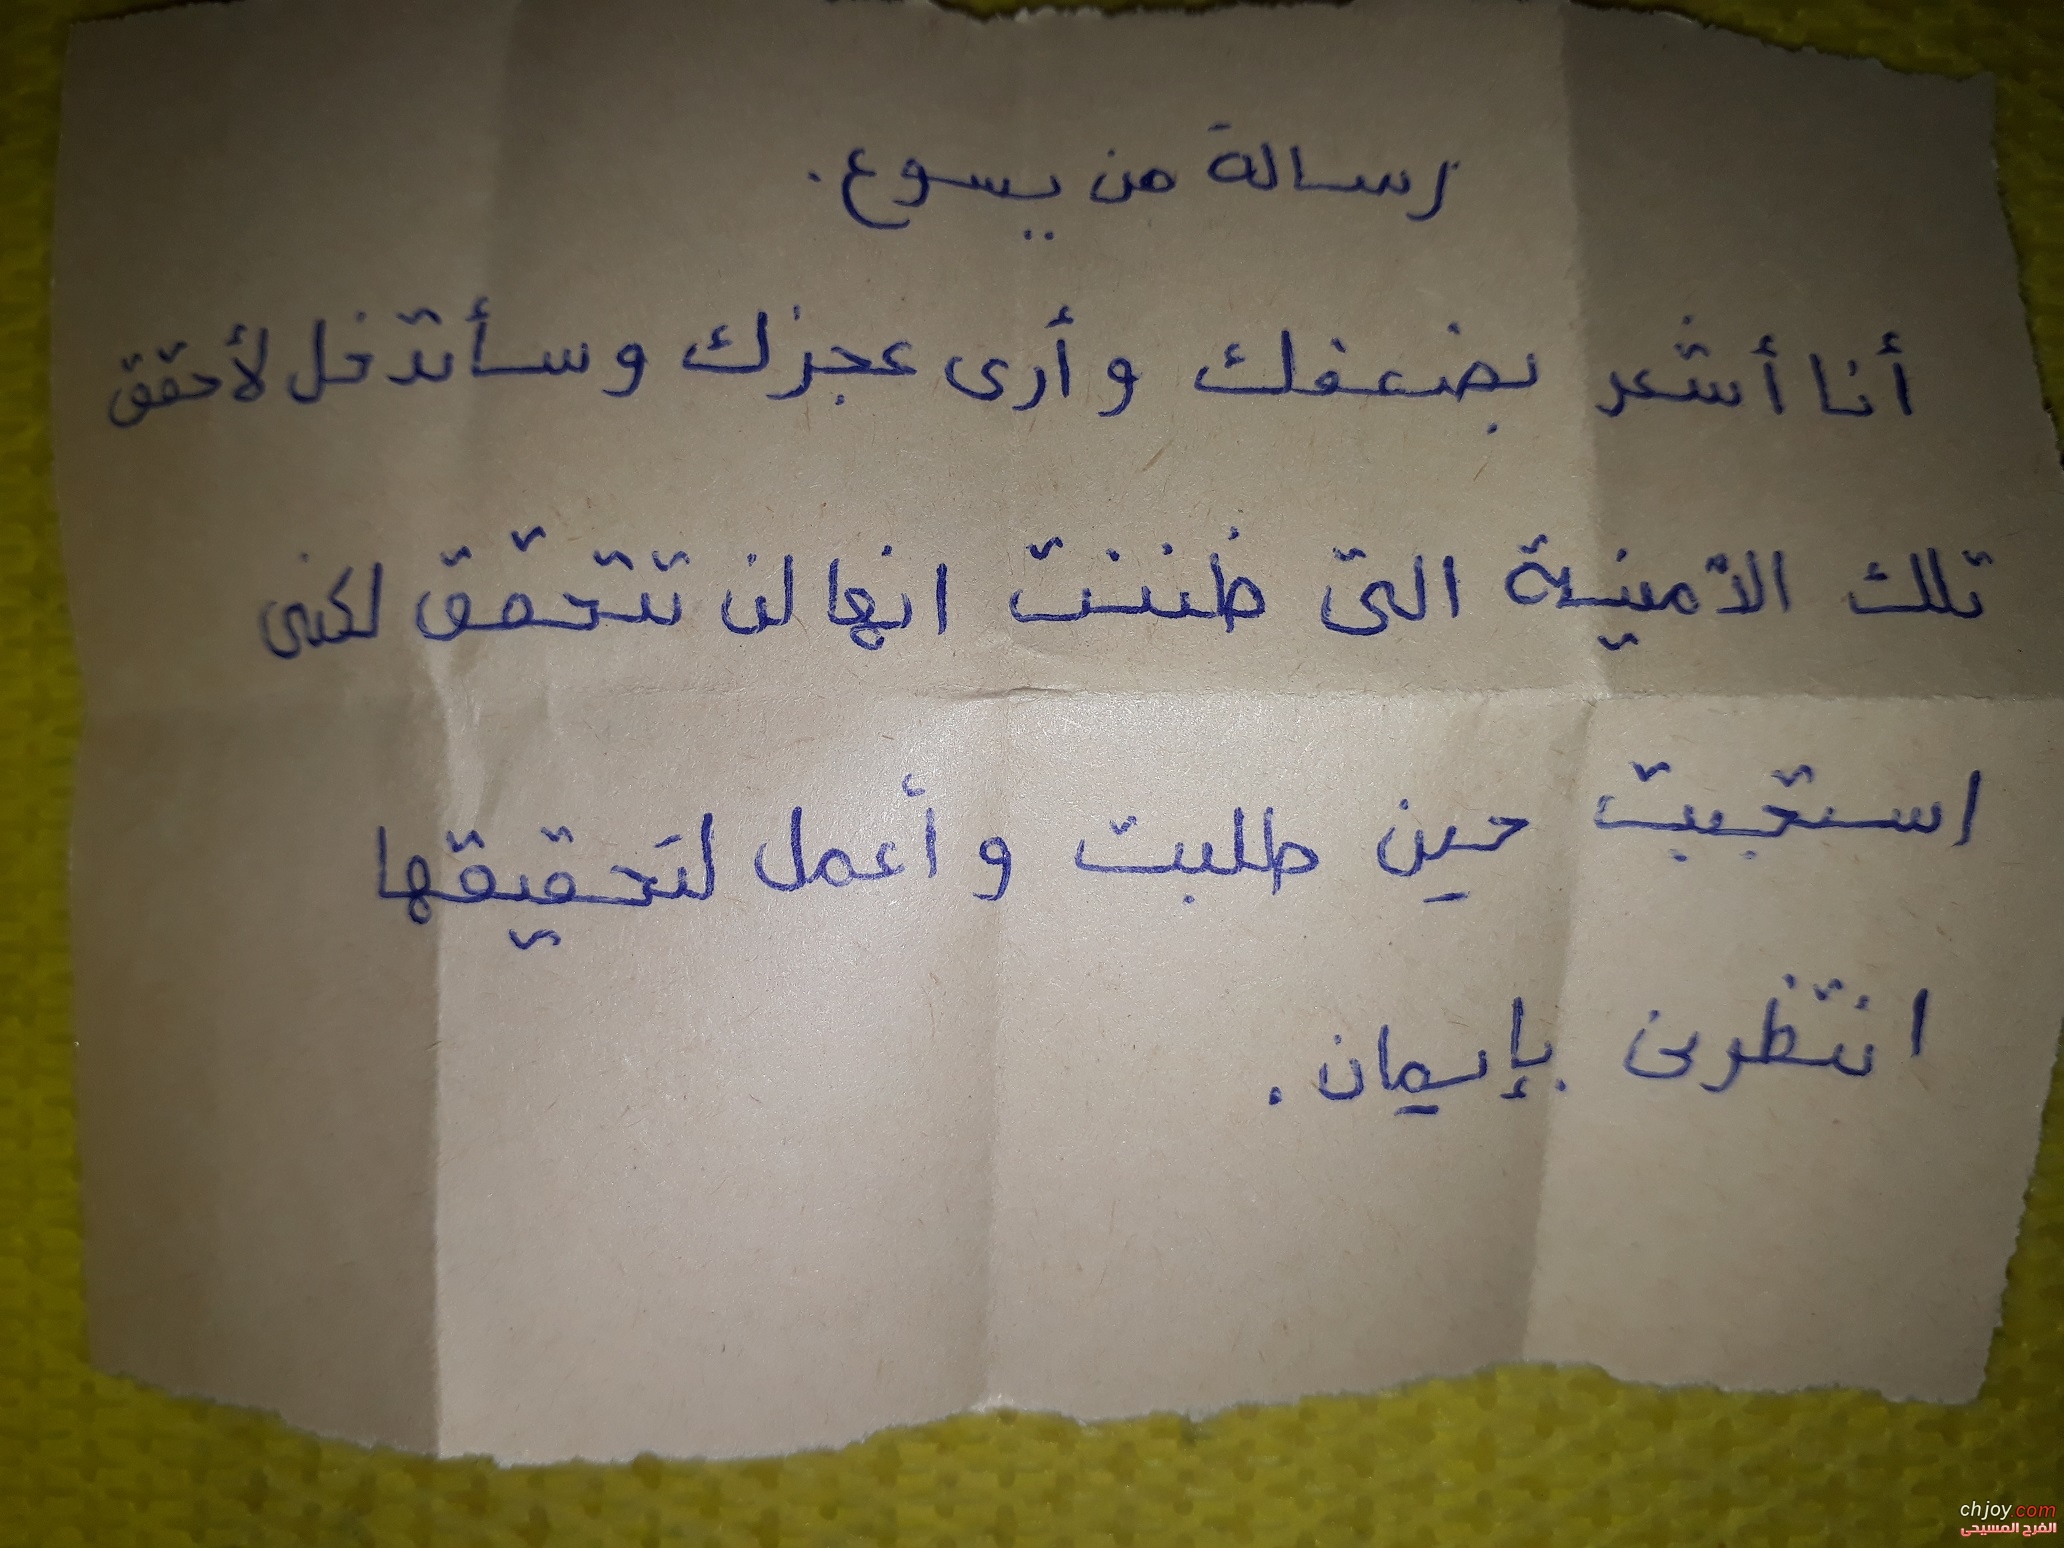 رسالة من يسوع.
أنا أشعر بضعفك وأرى عجزك وسأتدخل لأحقق
تلك الأمنية التى ظننت انها لن تتحقق لكنى
استجبت حين طلبت وأعمل لتحقيقها
انتظرنى بإيمان.
chjoy.com
الفرح المسيحى